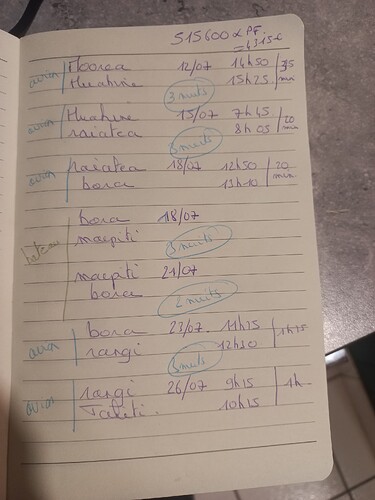 515600 x PF.
= 4315€
avion Moorea 12/07 14h50 35
Huahine 15h25 min
3 nuits
avion Huahine 15/07 7h45 20
raiatea 8h05 min
3 nuits
avion Raiatea 18/07 12h50 20
bora 13h10 min
bateau bora 18/07
maupiti
3 nuits
maupiti 21/07
bora
2 nuits
avion bora 23/07. 11h15 1h15
rangi 12h30
3 nuits
avion rangi 26/07 9h15 1h
Tahiti. 10h15